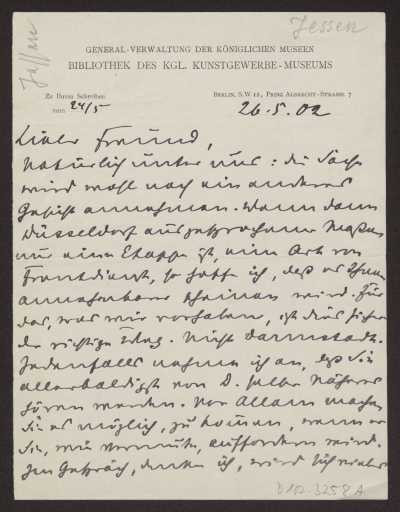 Jessen
Jessen
GENERAL-VERWALTUNG DER KÖNIGLICHEN MUSEEN
BIBLIOTHEK DES KGL. KUNSTGEWERBE-MUSEUMS
Zu Ihrem Schreiben
vom 24/5
BERLIN, S.W 12., PRINZ ALBRECHT-STRASSE 7
26.5.02
Lieber Freund,
Natürlich unter uns: die Sache
wird wohl noch ein anderes
Gesicht annehmen. Wenn dann
Düsseldorf ausgesprochener Maßen
nur eine Etappe ist, eine Art von
Frontdienst, so hoffe ich, daß es Ihnen
annehmbarer scheinen wird. Für
das, was wir vorhaben, ist dies sicher
der richtige Weg. Nicht Darmstadt.
Jedenfalls nehme ich an, daß Sie
allerbaldigst von D. selber Näheres
hören werden. Vor Allem machen
Sie es möglich, zu kommen, wenn er
Sie, wie vermute, auffordern wird.
Im Gespräch, denke ich, wird sich vieles
D102-3258 A